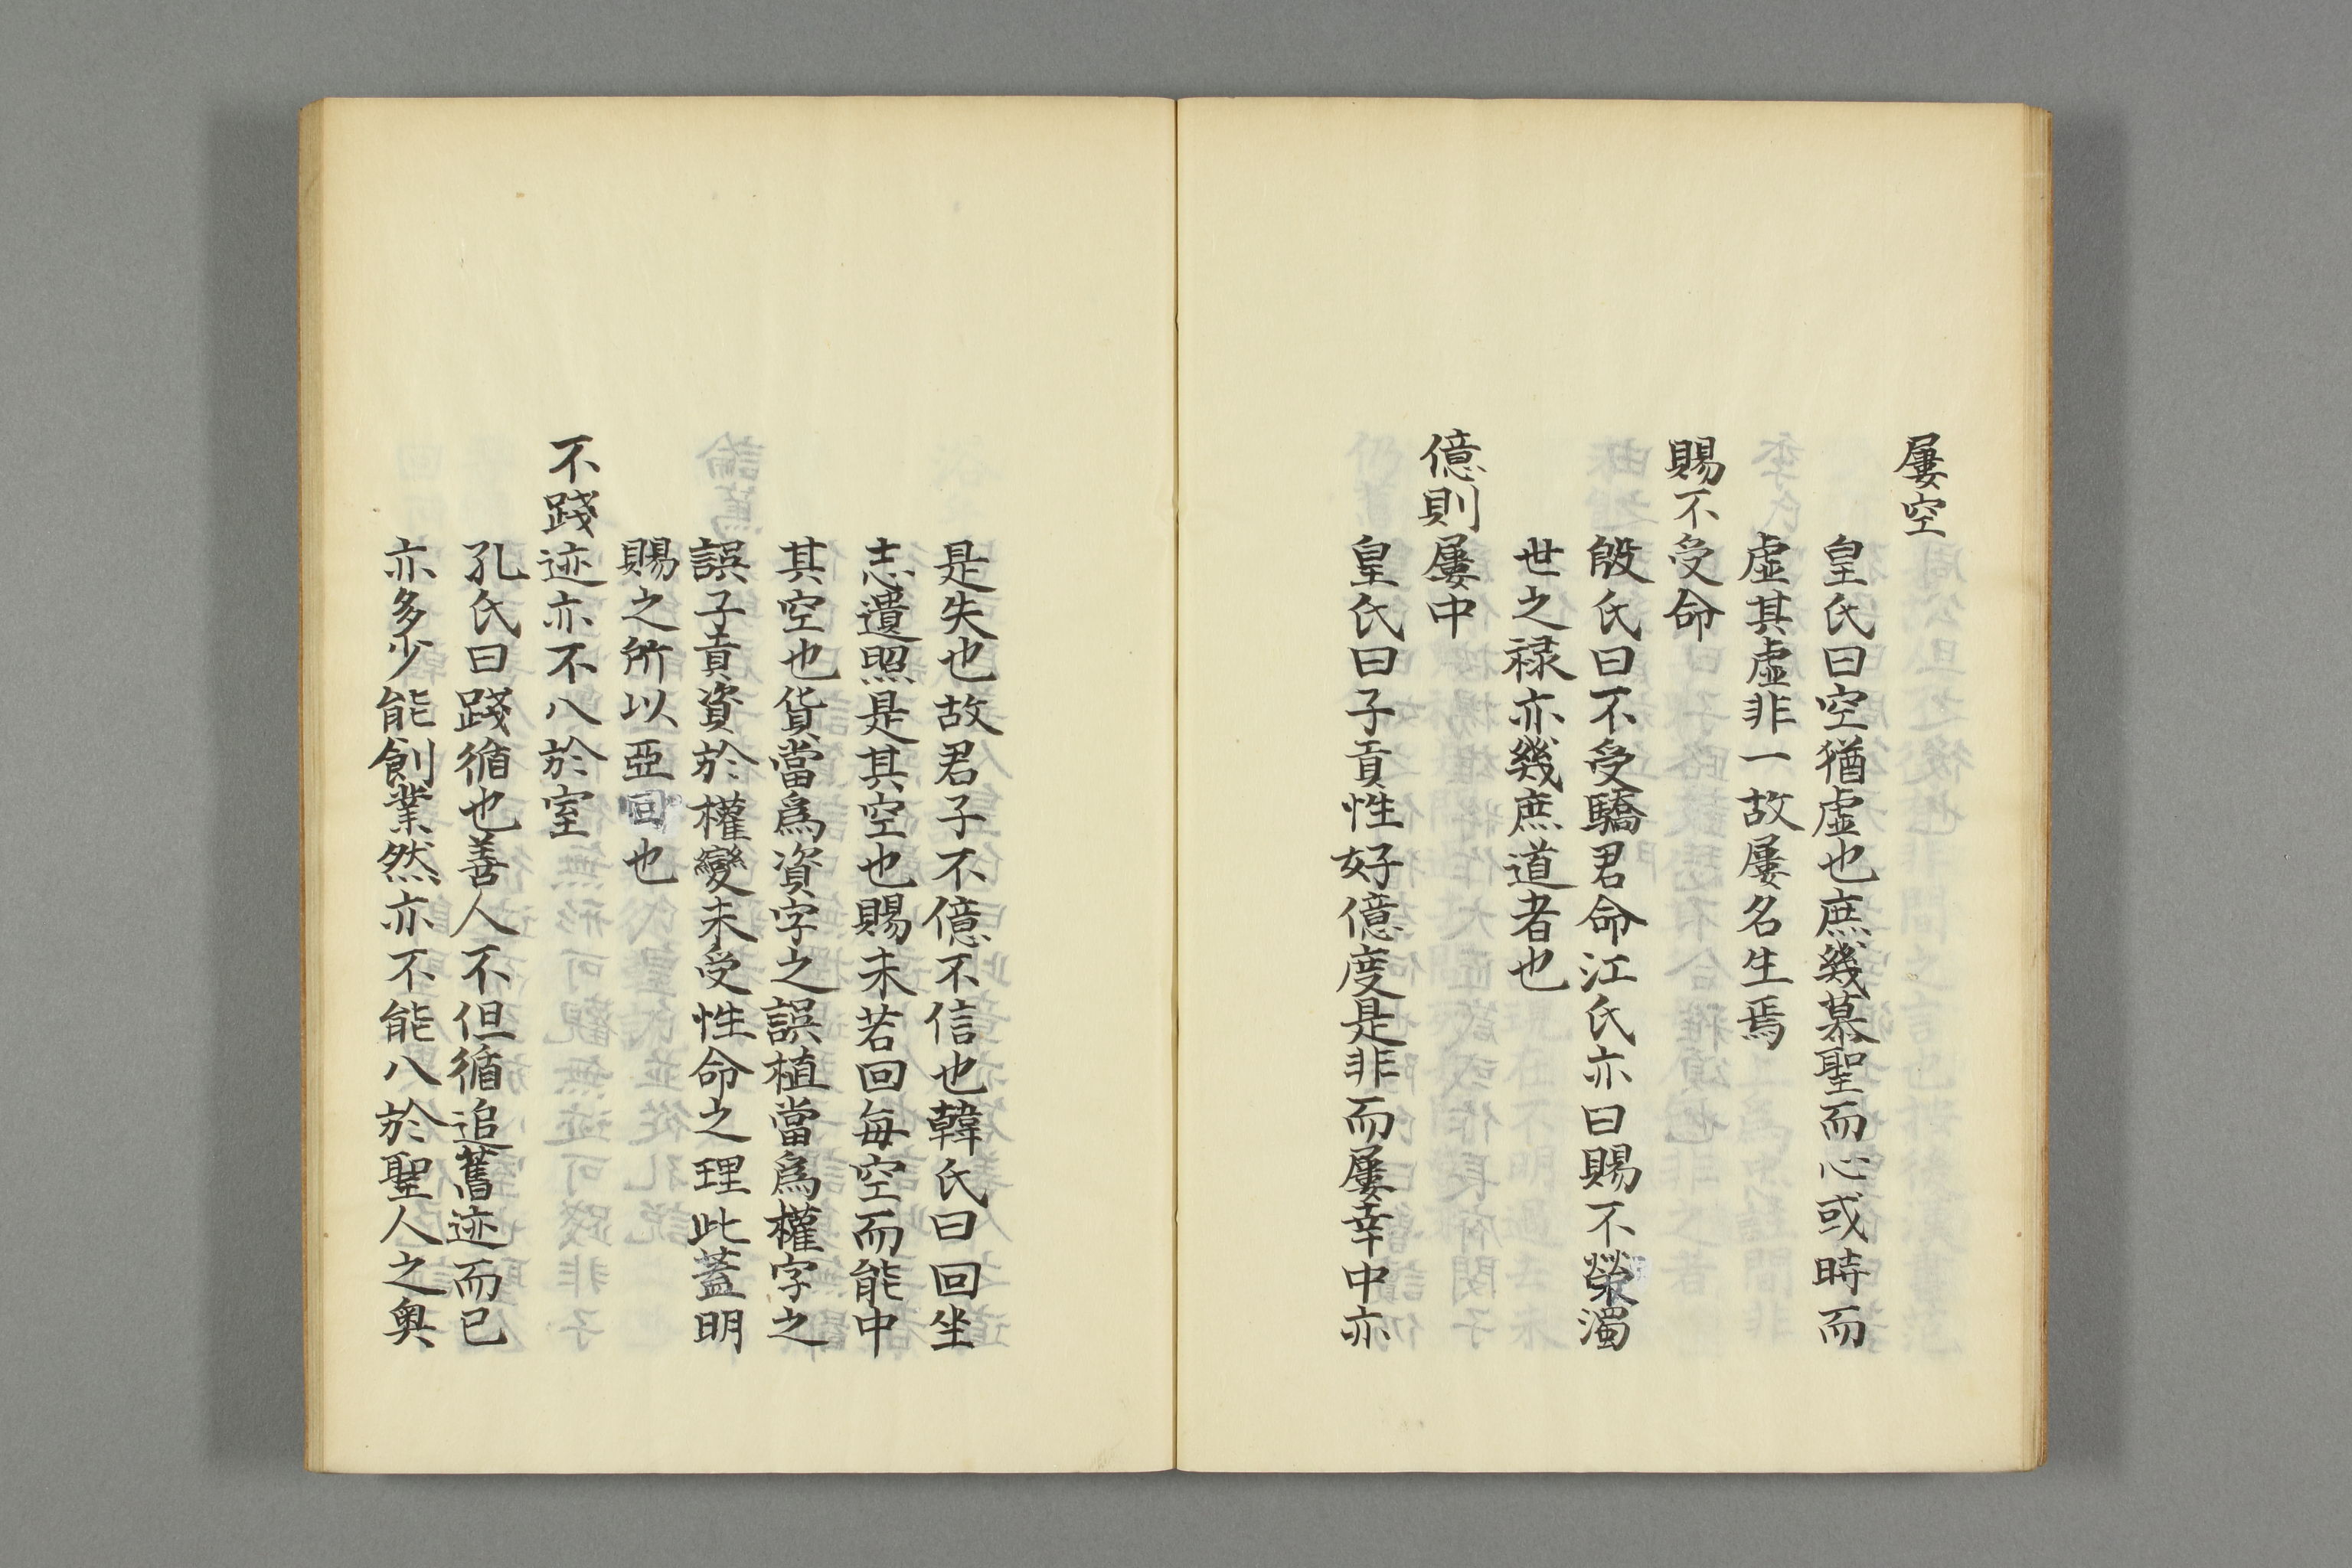 屢空
皇氏曰空猶虛也庶幾慕聖而心或時而
虛其虛非一故屢名生焉
賜不受命
殷氏曰不受驕君命江氏亦曰賜不榮濁
世之禄亦幾庶道者也
億則屢中
皇氏曰子貢性好億度是非而屢幸中亦
是失也故君子不億不信也韓氏曰回坐
志遺照是其空也賜未若回每空而能中
其空也貨當爲資字之誤植當爲權字之
誤子貢資於權變未受性命之理此蓋明
賜之所以亞回也
不踐迹亦不八於室
孔氏曰踐循也善人不但循追舊迹而已
亦多少能創業然亦不能八於聖人之奥